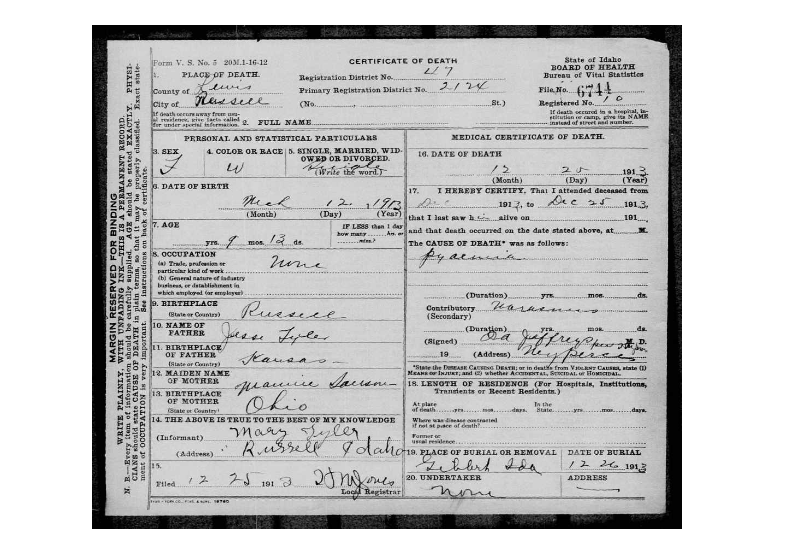 Form V. S. No. 5 20M.1-16-12
CERTIFICATE OF DEATH
State of Idaho
BOARD OF HEALTH
Bureau of Vital Statistics
1. PLACE OF DEATH.
County of Lewis
City of Russell
If death occurs away from usual residence, give facts called for under special information.
Registration District No. 47
Primary Registration District No. 2124
(No. St.)
File No. 6744
Registered No. 10
If death occurred in a hospital, institution or camp, give its NAME instead of street and number.
2. FULL NAME
PERSONAL AND STATISTICAL PARTICULARS
3. SEX F
4. COLOR OR RACE W
5. SINGLE, MARRIED, WIDOWED OR DIVORCED.
(Write the word.) Single
6. DATE OF BIRTH
Mch 12 1913
(Month) (Day) (Year)
7. AGE
yrs. 9 mos. 13 ds.
IF LESS than 1 day
how many hrs. or
mins.?
8. OCCUPATION
(a) Trade, profession or
particular kind of work None
(b) General nature of industry
business, or establishment in
which employed (or employer)
9. BIRTHPLACE
(State or Country) Russell
10. NAME OF
FATHER Jesse Tyler
11. BIRTHPLACE
OF FATHER
(State or Country) Kansas
12. MAIDEN NAME
OF MOTHER
13. BIRTHPLACE
OF MOTHER
(State or Country) Ohio
14. THE ABOVE IS TRUE TO THE BEST OF MY KNOWLEDGE
(Informant) Mary Tyler
(Address) Russell Idaho
15.
Filed 12 25 1913 Jones
Local Registrar
MEDICAL CERTIFICATE OF DEATH.
16. DATE OF DEATH
12 25 1913
(Month) (Day) (Year)
17. I HEREBY CERTIFY, That I attended deceased from
Dec 1913, to Dec 25 1913
that I last saw h alive on 191
and that death occurred on the date stated above, at M.
The CAUSE OF DEATH* was as follows:
Pyaemia
(Duration) yrs. mos. ds.
Contributory Marasmus
(Secondary)
(Duration) yrs. mos. ds.
(Signed) Jeffrey M. D.
19 (Address) Nezperce
*State the DISEASE CAUSING DEATH; or in deaths from VIOLENT CAUSES, state (1) MEANS OF INJURY; and (2) whether ACCIDENTAL, SUICIDAL or HOMICIDAL.
18. LENGTH OF RESIDENCE (For Hospitals, Institutions, Transients or Recent Residents.)
At place
of death yrs. mos. days.
In the
State yrs. mos. days.
Where was disease contracted
if not at place of death?
Former or
usual residence
19. PLACE OF BURIAL OR REMOVAL
Ida
DATE OF BURIAL
12 26 1913
20. UNDERTAKER
None
ADDRESS
MARGIN RESERVED FOR BINDING
WRITE PLAINLY, WITH UNFADING INK—THIS IS A PERMANENT RECORD.
N. B.—Every item of information should be carefully supplied. AGE should be stated EXACTLY. PHYSICIANS should state CAUSE OF DEATH in plain terms, so that it may be properly classified. Exact statement of OCCUPATION is very important. See instructions on back of certificate.